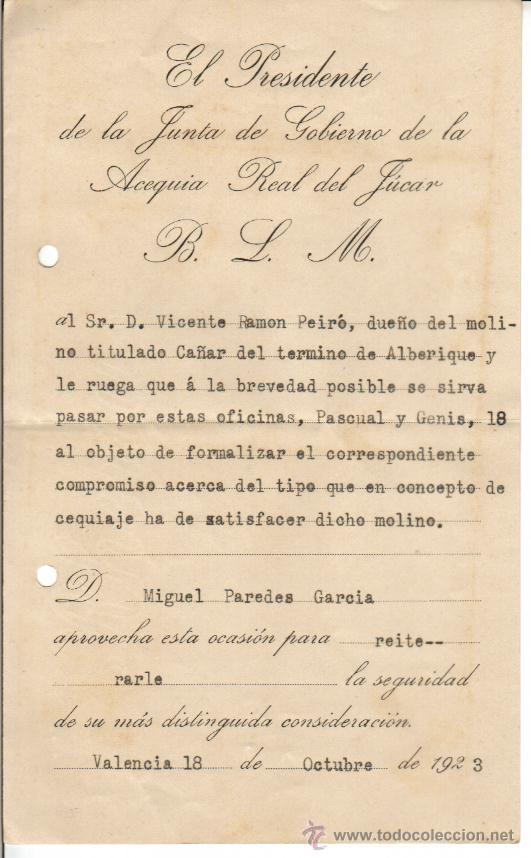 El Presidente
de la Junta de Gobierno de la
Acequia Real del Júcar
B. L. M.
al Sr. D. Vicente Ramon Peiró, dueño del moli-
no titulado Cañar del termino de Alberique y
le ruega que á la brevedad posible se sirva
pasar por estas oficinas, Pascual y Genis, 18
al objeto de formalizar el correspondiente
compromiso acerca del tipo que en concepto de
cequiaje ha de satisfacer dicho molino.
D. Miguel Paredes Garcia
aprovecha esta ocasión para reite--
rarle la seguridad
de su más distinguida consideración.
Valencia 18 de Octubre de 1923
www.todocoleccion.net